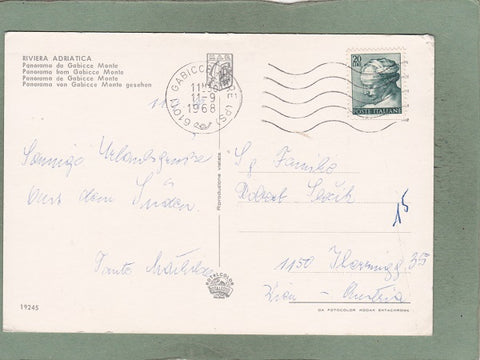 RIVIERA ADRIATICA
Panorama da Gabicce Monte
Panorama from Gabicce Monte
Panorama de Gabicce Monte
Panorama von Gabicce Monte gesehen
GABICCE MARE (PS)
11-9
1968
(61011)
20
POSTE ITALIANE
Sonnige Urlaubsgrüsse
aus dem Süden.
Tante Mathilde
Sg Familie
15
1150
35
Wien - Austria
Riproduzione vietata
19245
DA FOTOCOLOR KODAK EKTACHROME